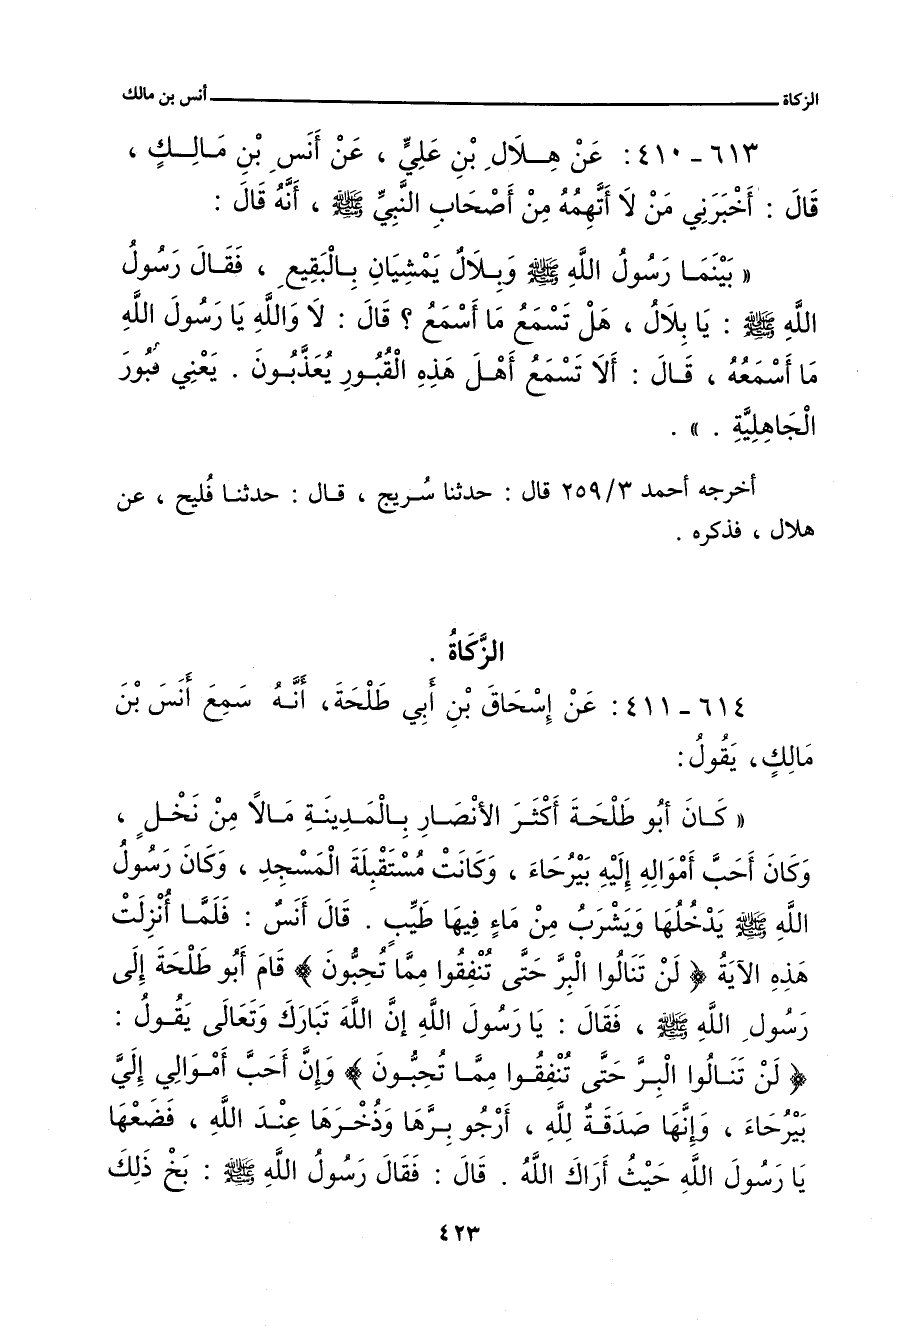 الزكاة أنس بن مالك
٦١٣ - ٤١٠ : عَنْ هِـلَالِ بْنِ عَلِيٍّ ، عَنْ أَنَسِ بْنِ مَـالِـكٍ ،
قَالَ : أَخْبَرَنِي مَنْ لَا أَتَّهِمُهُ مِنْ أَصْحَابِ النَّبِيِّ ﷺ ، أَنَّهُ قَالَ :
« بَيْنَمَـا رَسُولُ اللَّهِ ﷺ وَبِـلَالٌ يَمْشِيَانِ بِـالْبَقِيعِ ، فَقَـالَ رَسُولُ
اللَّهِ ﷺ : يَا بِلَالُ ، هَلْ تَسْمَعُ مَا أَسْمَعُ ؟ قَالَ : لَا وَاللَّهِ يَا رَسُولَ اللَّهِ
مَا أَسْمَعُهُ ، قَـالَ : أَلَا تَسْمَعُ أَهْـلَ هَذِهِ الْقُبُورِ يُعَذَّبُونَ . يَعْنِي قُبُورَ
الْجَاهِلِيَّةِ . » .
أخرجه أحمد ٢٥٩/٣ قال : حدثنا سُريج ، قـال : حدثنـا فُليح ، عن
هلال ، فذكره .
الزَّكَاةُ .
٦١٤ - ٤١١ : عَنْ إِسْحَاقَ بْنِ أَبِي طَلْحَةَ، أَنَّـهُ سَمِعَ أَنَسَ بْنَ
مَالِكٍ، يَقُولُ:
« كَـانَ أَبُو طَلْحَةَ أَكْثَرَ الأَنْصَـارِ بِـالْمَدِينَةِ مَـالًا مِنْ نَخْلٍ ،
وَكَانَ أَحَبَّ أَمْوَالِهِ إِلَيْهِ بَيْرُحَاءَ ، وَكَانَتْ مُسْتَقْبِلَةَ الْمَسْجِدِ ، وَكَانَ رَسُولُ
اللَّهِ ﷺ يَدْخُلُهَا وَيَشْرَبُ مِنْ مَاءٍ فِيهَا طَيِّبٍ . قَالَ أَنَسٌ : فَلَمَّا أُنْزِلَتْ
هَذِهِ الآيَةُ ﴿ لَنْ تَنَالُوا الْبِرَّ حَتَّى تُنْفِقُوا مِمَّا تُحِبُّونَ ﴾ قَامَ أَبُو طَلْحَةَ إِلَى
رَسُولِ اللَّهِ ﷺ ، فَقَالَ : يَا رَسُولَ اللَّهِ إِنَّ اللَّهَ تَبَارَكَ وَتَعَالَى يَقُولُ :
﴿ لَنْ تَنَـالُوا الْبِرَّ حَتَّى تُنْفِقُـوا مِمَّـا تُحِبُّـونَ ﴾ وَإِنَّ أَحَبَّ أَمْـوَالِي إِلَيَّ
بَيْرُحَاءَ ، وَإِنَّهَا صَدَقَـةٌ لِلَّهِ ، أَرْجُو بِـرَّهَا وَذُخْـرَهَا عِنْـدَ اللَّهِ ، فَضَعْهَا
يَا رَسُولَ اللَّهِ حَيْثُ أَرَاكَ اللَّهُ . قَالَ : فَقَالَ رَسُولُ اللَّهِ ﷺ : بَخْ ذَلِكَ
٤٢٣